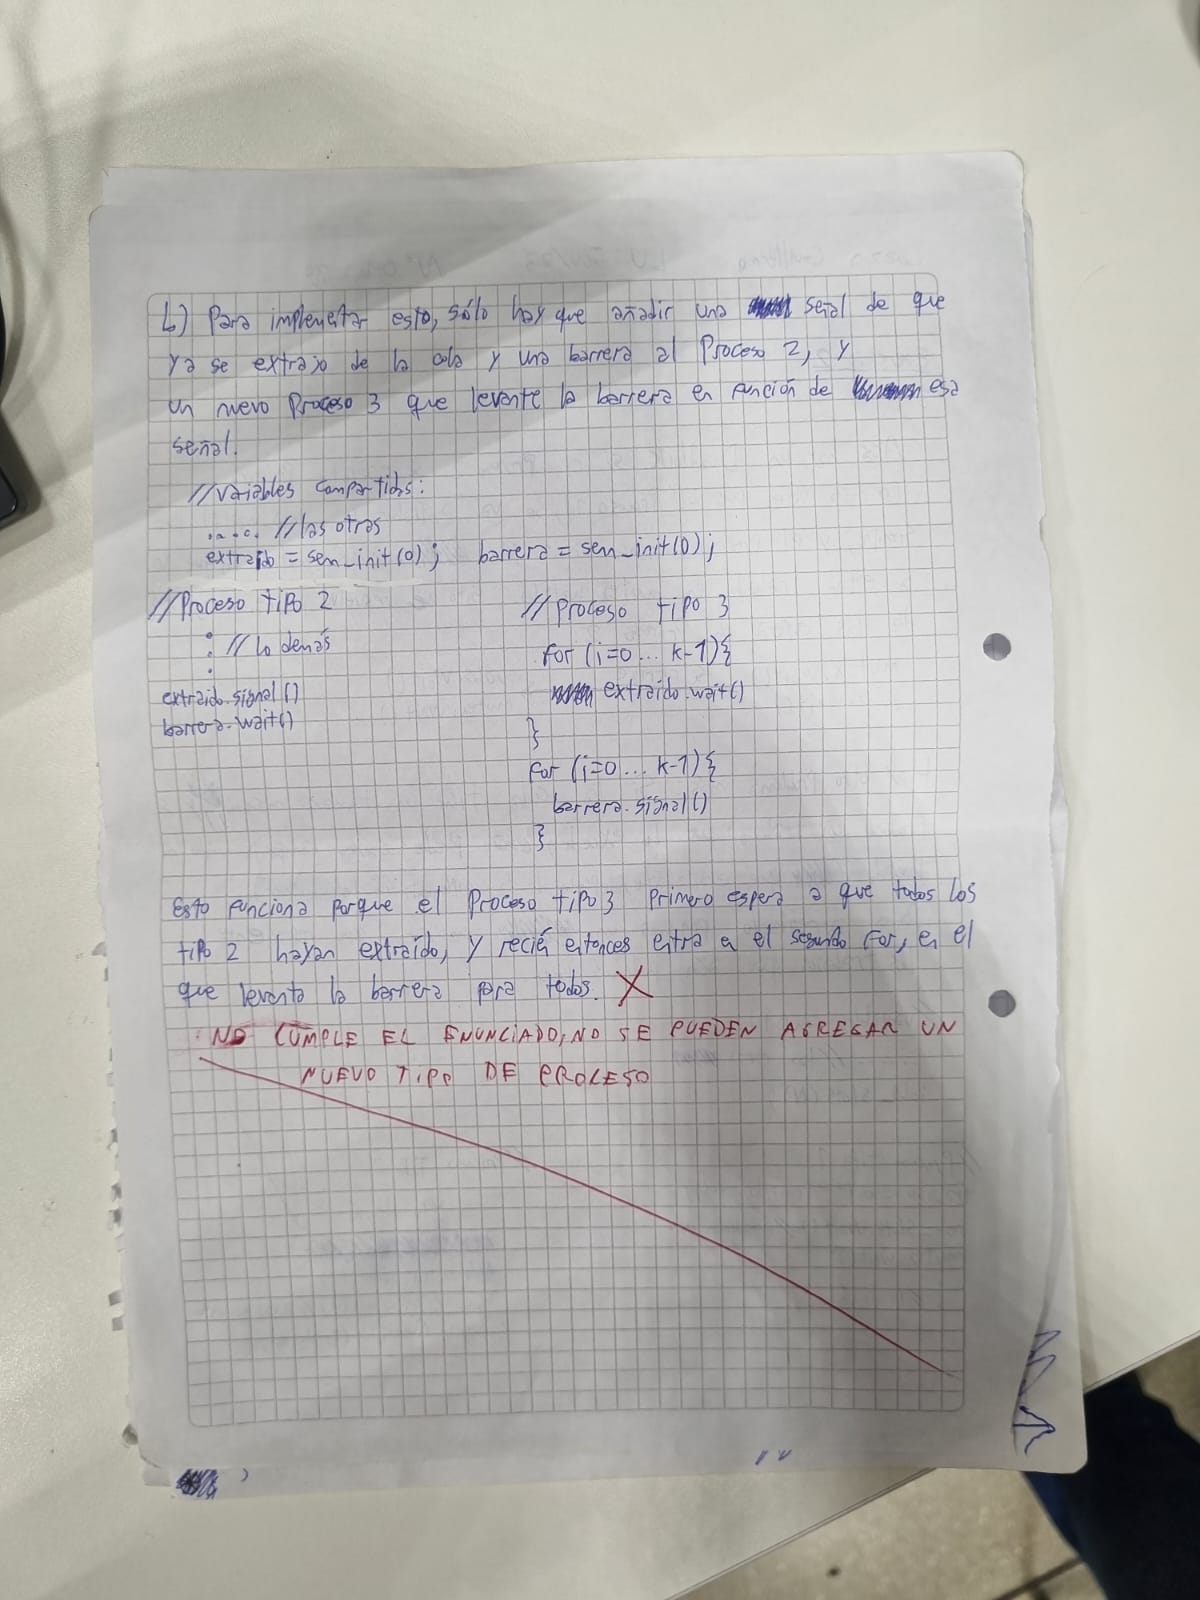 b) Para implementar esto, sólo hay que añadir una señal de que
ya se extrajo de la cola y una barrera al Proceso 2, y
un nuevo Proceso 3 que levante la barrera en función de esa
señal.
//Variables compartidas:
..... //las otras
extraido = sem_init(0); barrera = sem_init(0);
//Proceso tipo 2
: //lo demás
extraido.signal()
barrera.wait()
//Proceso tipo 3
for (i=0... k-1){
extraido.wait()
}
for (i=0... k-1){
barrera.signal()
}
Esto funciona porque el Proceso tipo 3 primero espera a que todos los
tipo 2 hayan extraído, y recién entonces entra en el segundo for, en el
que levanta la barrera para todos. X
NO CUMPLE EL ENUNCIADO, NO SE PUEDEN AGREGAR UN
NUEVO TIPO DE PROCESO